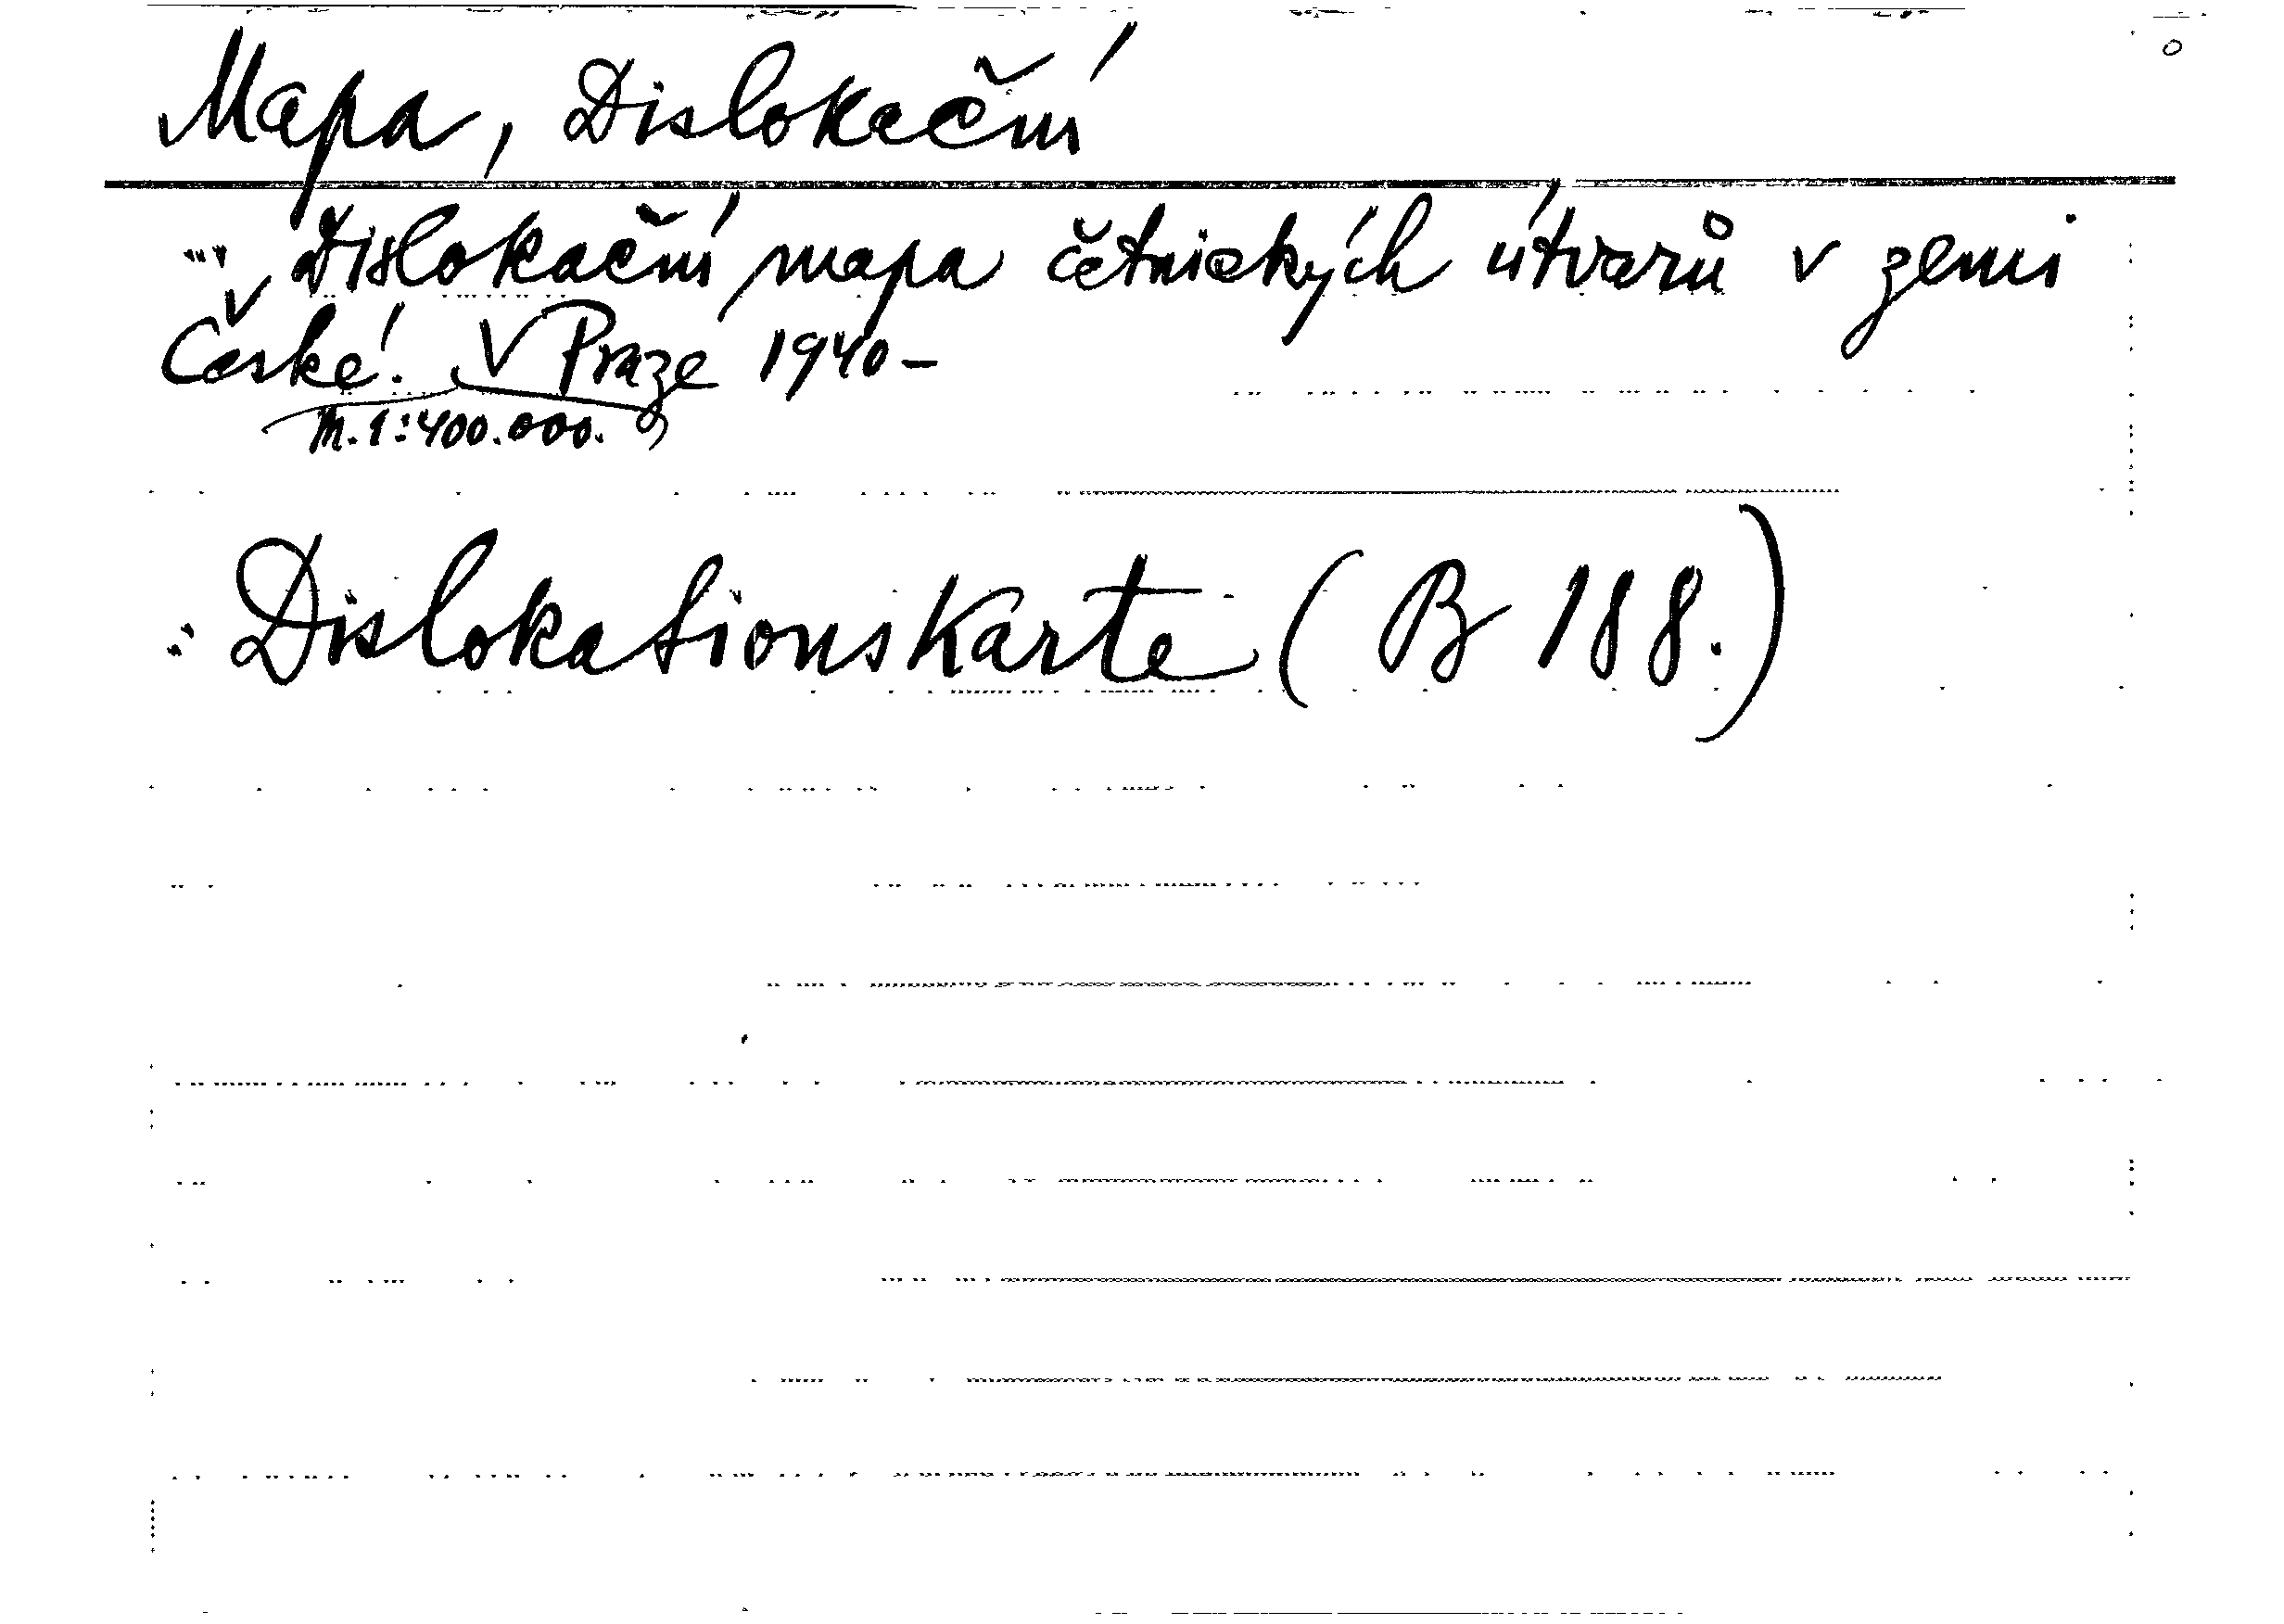 Mapa, Dislokační
... Dislokační mapa četnických útvarů v zemi
České. V Praze 1940-
M. 1:400.000.
: Dislokationskarte (B 188.)